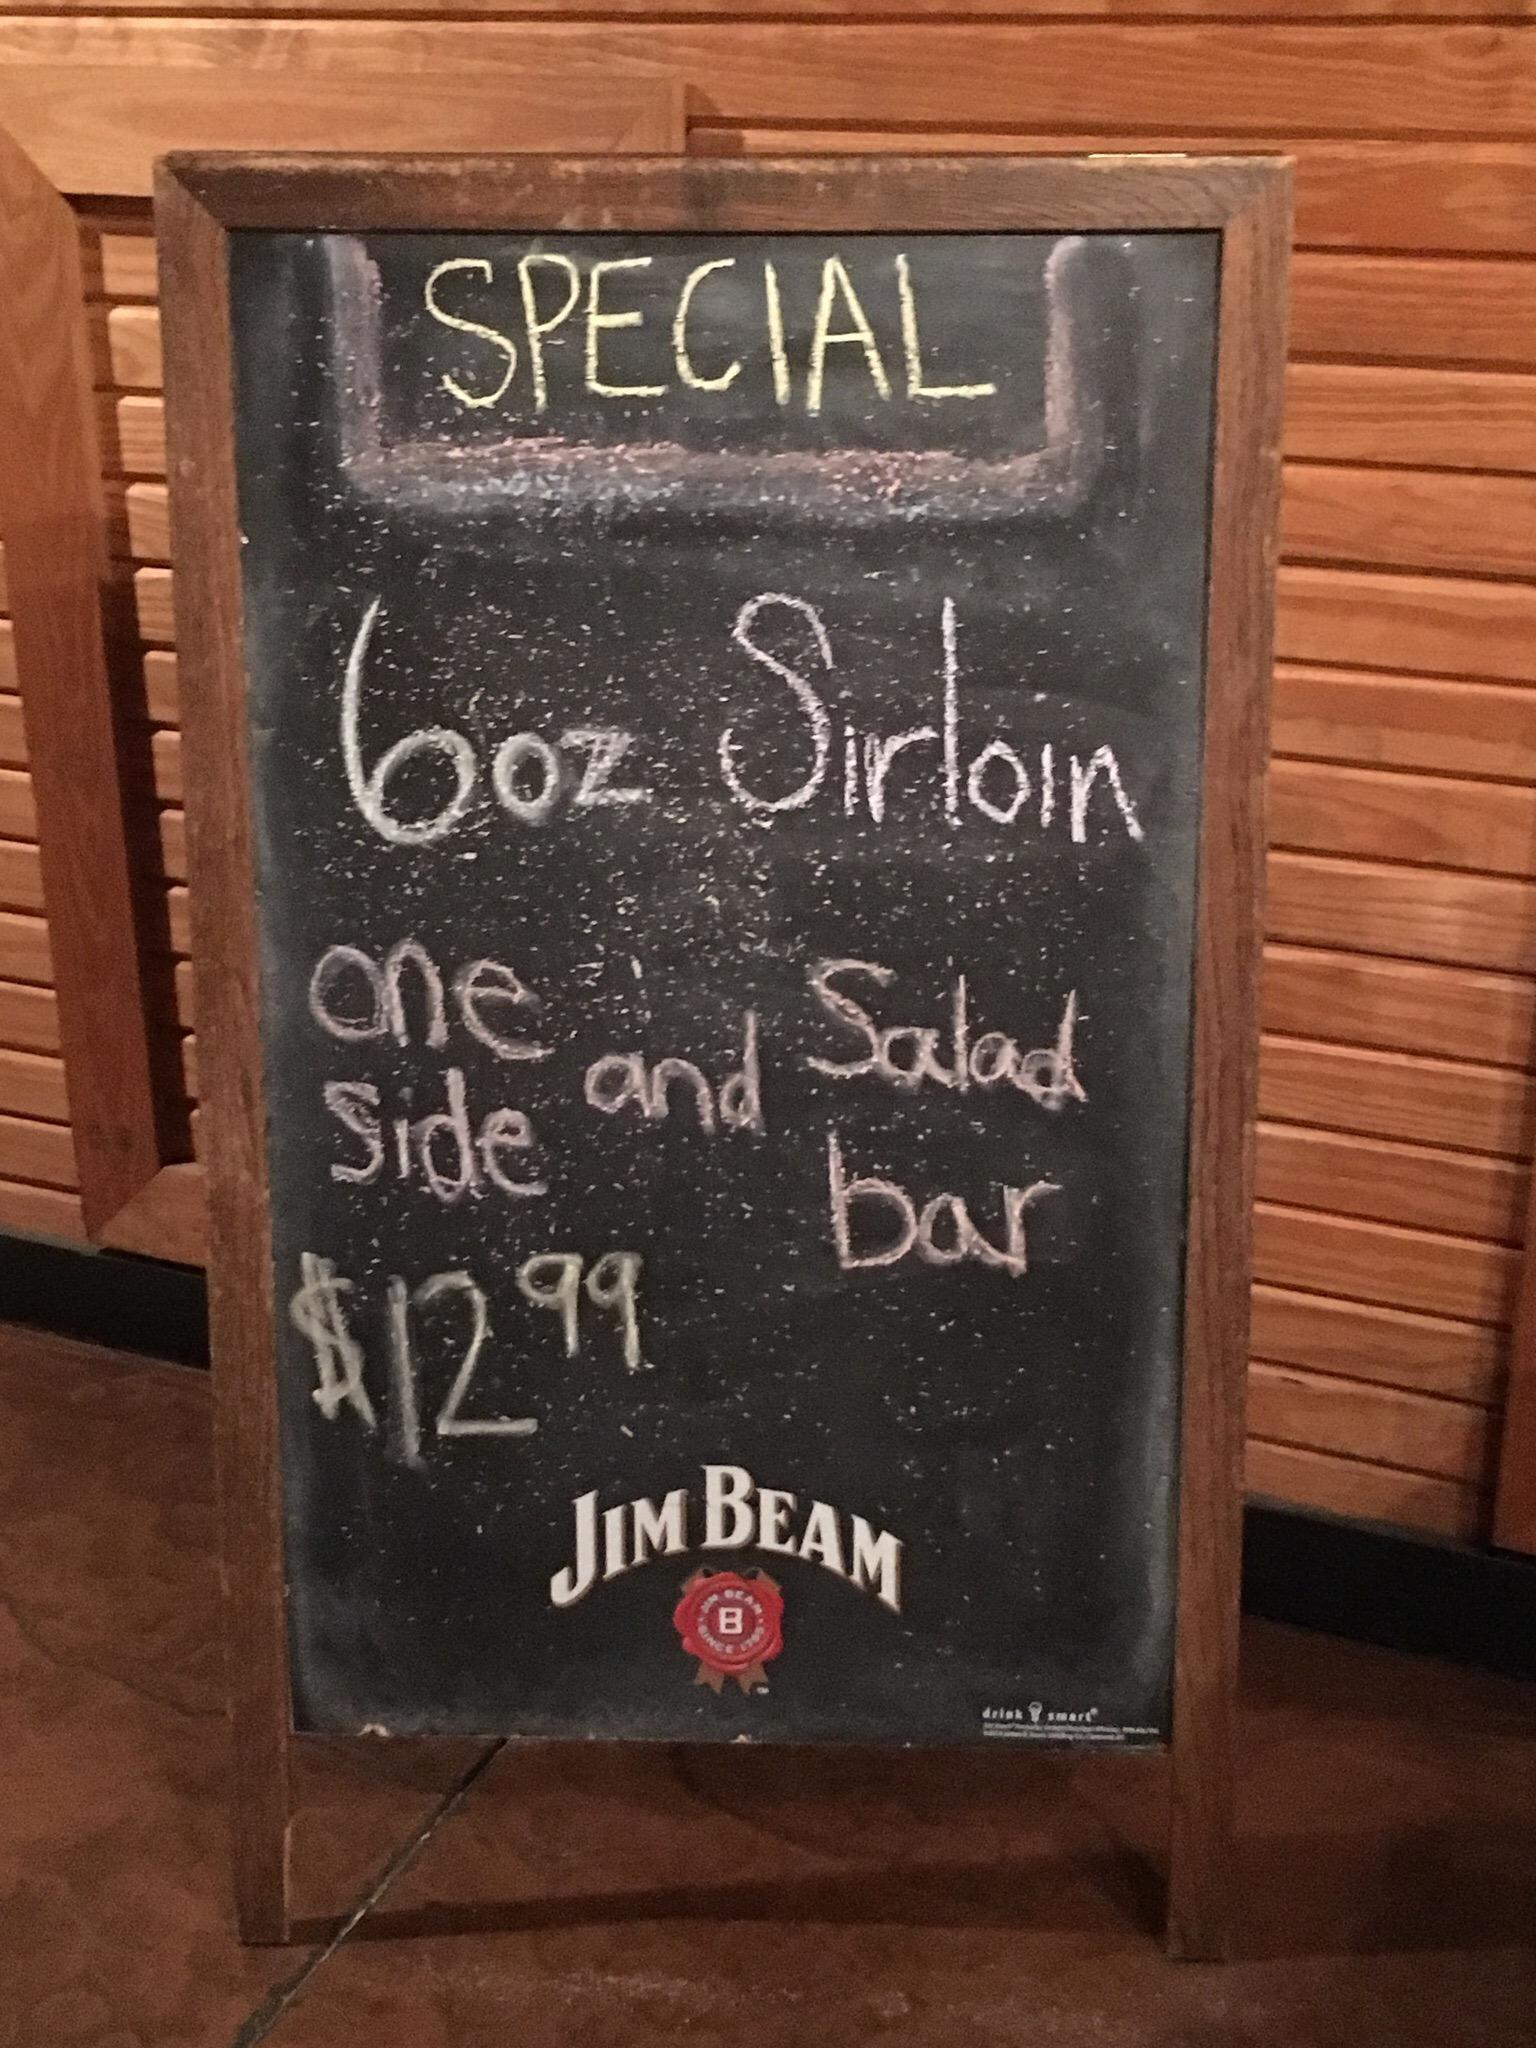 SPECIAL
6oz Sirloin
one side and Salad bar
$12.99
JIM BEAM
JIM BEAM
B
SINCE 1795
drink smart®